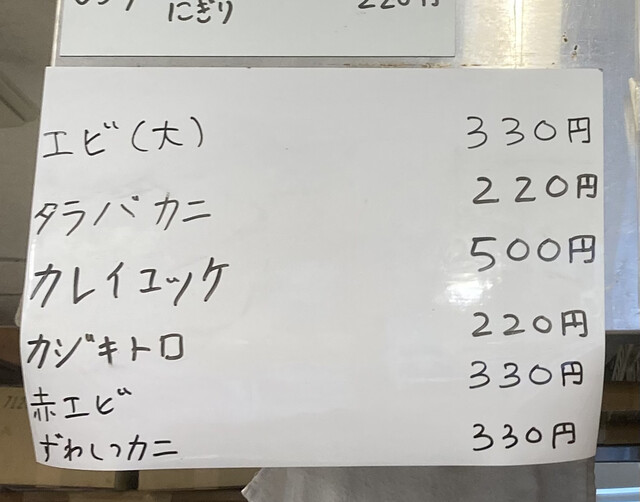 にぎり 220円
エビ(大) 330円
タラバカニ 220円
カレイユッケ 500円
カジキトロ 220円
赤エビ 330円
ずわいカニ 330円